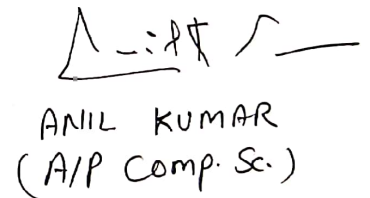 ANIL KUMAR
(A/P Comp. Sc.)